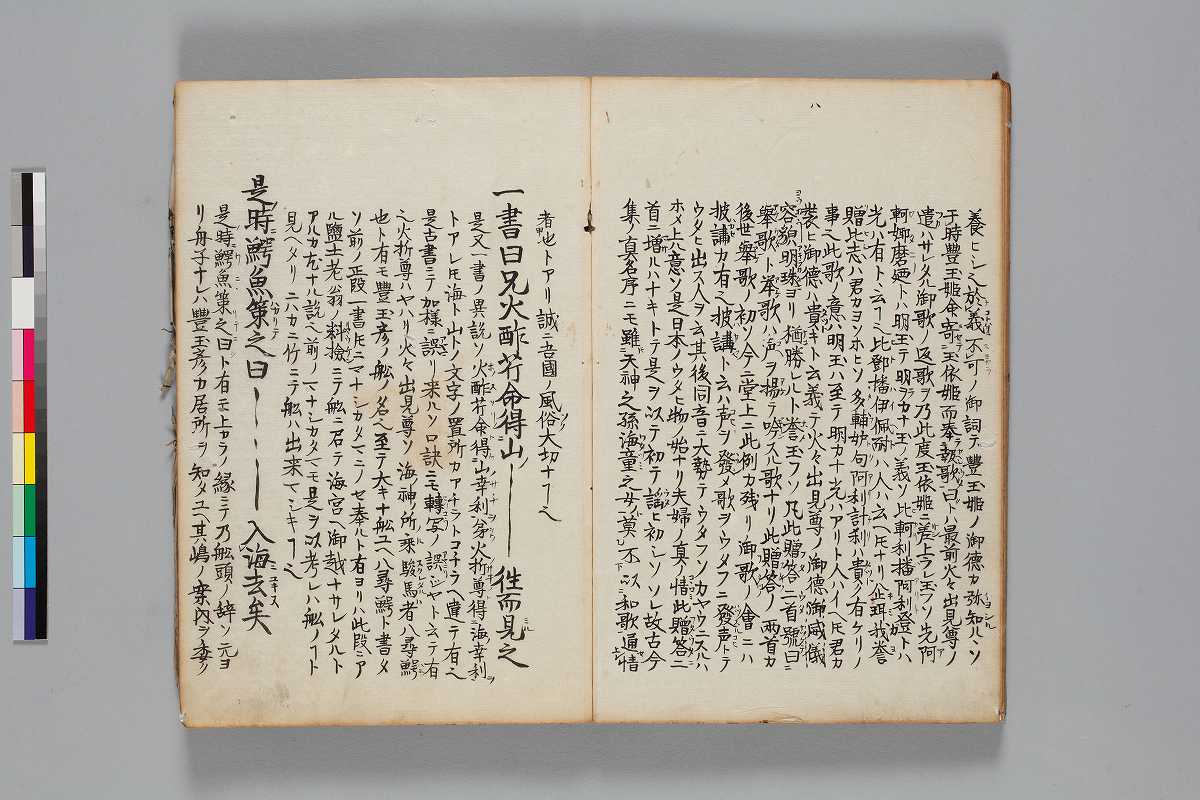 養ヒシ之於義不可ノ御詞テ豊玉姫ノ御德カ弥知ルヽソ
于時豊玉姫命寄玉依姫而奉報歌曰トハ最前火々出見尊ノ
遣ハサレタル御歌ノ返歌ヲ乃此度玉依姫ニ差上ラレ玉フソ先阿
軻娜磨廼トハ明玉テ明ヲカナ玉ノ義ソ比軻利播阿利登トハ
光ハ有ト云フ比鄧播伊佩耐ハ人ハ云ヘトナリ企珥我誉
贈比志ハ君カヨソホヒソ多輔妬句阿利計利ハ貴ク有ケリノ
事此歌ノ意ハ明玉ハ至テ明カナ光ハアリト人ハイヘ𪜈君カ
裝ヒ御德ハ貴キト云義テ火々出見尊ノ御德御威儀
容貌明珠ヨリ猶勝レルト誉玉フソ凡此贈答二首號曰
舉歌ト挙歌ハ声ヲ揚テ吟スル歌ナリ此贈答ノ両首カ
後世舉歌ノ初ソ今ニ堂上ニ此例カ残リ御歌ノ會ニハ
披講カ有披講ト云ハ声ヲ發メ歌ヲウタフニ發声トテ
ウタヒ出ス人ヲ云其後同音ニ大勢テウタフソカヤウニスルハ
ホメ上ル意ソ是日本ノウタヒ物ノ始ナリ夫婦ノ真ノ情此贈答二
首ニ増ルハナキトテ是ヲ以テ初テ話ヒ初シソソレ故古今
集ノ真名序ニモ雖天神之孫海童之女莫不以和歌通情
者也トアリ誠ニ吾國ノ風俗大切ナ丁ヘ
一書曰兄火酢芹命得山ノ――往而見之
是又一書ノ異説ソ火酢芹命得山幸利弟火折尊得海幸利
トアレ𪜈海ト山トノ文字ノ置所カアチラトコチラヘ違テ有
是古書ニテ加様ニ誤リ来ルソ口訣ニモ轉写ノ誤ジヤト云テ有
之火折尊ハヤハリ火々出見尊ソ海神ノ所乗駿馬者八尋鰐
也ト有モ豊玉彦ノ舩ノ名ヘ至テ大キナ舩ユヘ八尋鰐ト書メ
ソ前ノ正段一書𪜈ニマナシカタマニノセ奉ルト有ヨリハ此段ニア
ル鹽土老翁ノ料撿ニテ舩ニ召テ海宮ヘ御越ナサレタルト
アルカ尤ナル説ヘ前ノマナシカタマモ是ヲ以考レハ舩ノ丁ト
見ヘタリニハカニ竹ニテ舩ハ出来マシキ丁
是時鰐魚策之曰――――入海去矣
是時鰐魚策之曰ト有モ上カラノ縁ニテ乃舩頭ノ辞ソ元ヨ
リ舟子ナレハ豊玉彦カ居所ヲ知メユヘ其嶋ノ案内ヲ委ク